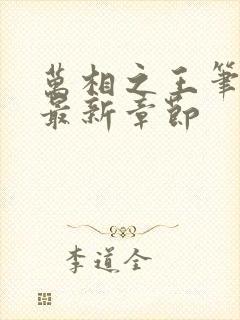 萬相之王筆
最新章節
李道全